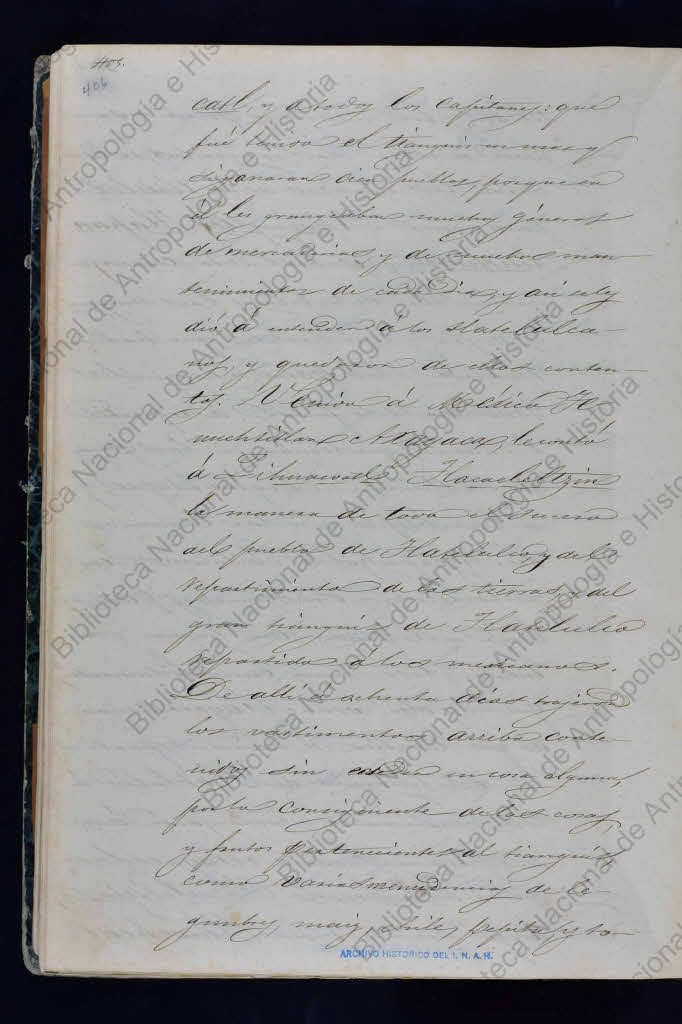 403.
406
catl, y a todos los capitanes: que
fué tenido el tianguis en mas q.
si ganaran cien pueblos, porque en
él les grangeaban muchos géneros
de mercaderias, y de muchos man-
tenimientos de cada dia, y asi se les
dió á entender á los tlatelulca-
nos, y quedaron de ellos conten-
tos. Venido á México Te-
nuchtitlan Axayaca, le contó
á Zihuacoatl Tlacaeleltzin
la manera de todo el suceso
del pueblo de Tlatelulco, y del
repartimiento de las tierras, y del
gran tianguis de Tlatelulco
repartido á los mexicanos.
De alli á ochenta dias trajeron
los vastimentos arriba conte-
nidos sin en cosa alguna,
por lo consiguiente de las cosas,
y frutos pertenecientes al tianguis,
como varias menudencias de le-
gumbres, maiz, chile, pepita, y to-
ARCHIVO HISTORICO DEL I. N. A. H.
Biblioteca Nacional de Antropología e Historia